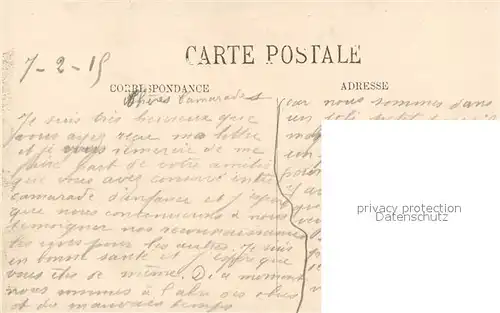 7-2-15
CARTE POSTALE
CORRESPONDANCE
ADRESSE
Chers Camarades
Je suis très heureux que
vous ayez reçu ma lettre
et je vous remercie de me
faire part de votre amitié
que vous avez conservé entre
camarade d'enfance et j'espère
que nous continuerons à nous
témoigner nos reconnaissances
les uns pour les autres. Je suis
en bonne santé et j'espère que
vous êtes de même. De ce moment
nous sommes à l'abri des obus
et du mauvais temps
car nous sommes dans
un joli petit
privacy protection
Datenschutz